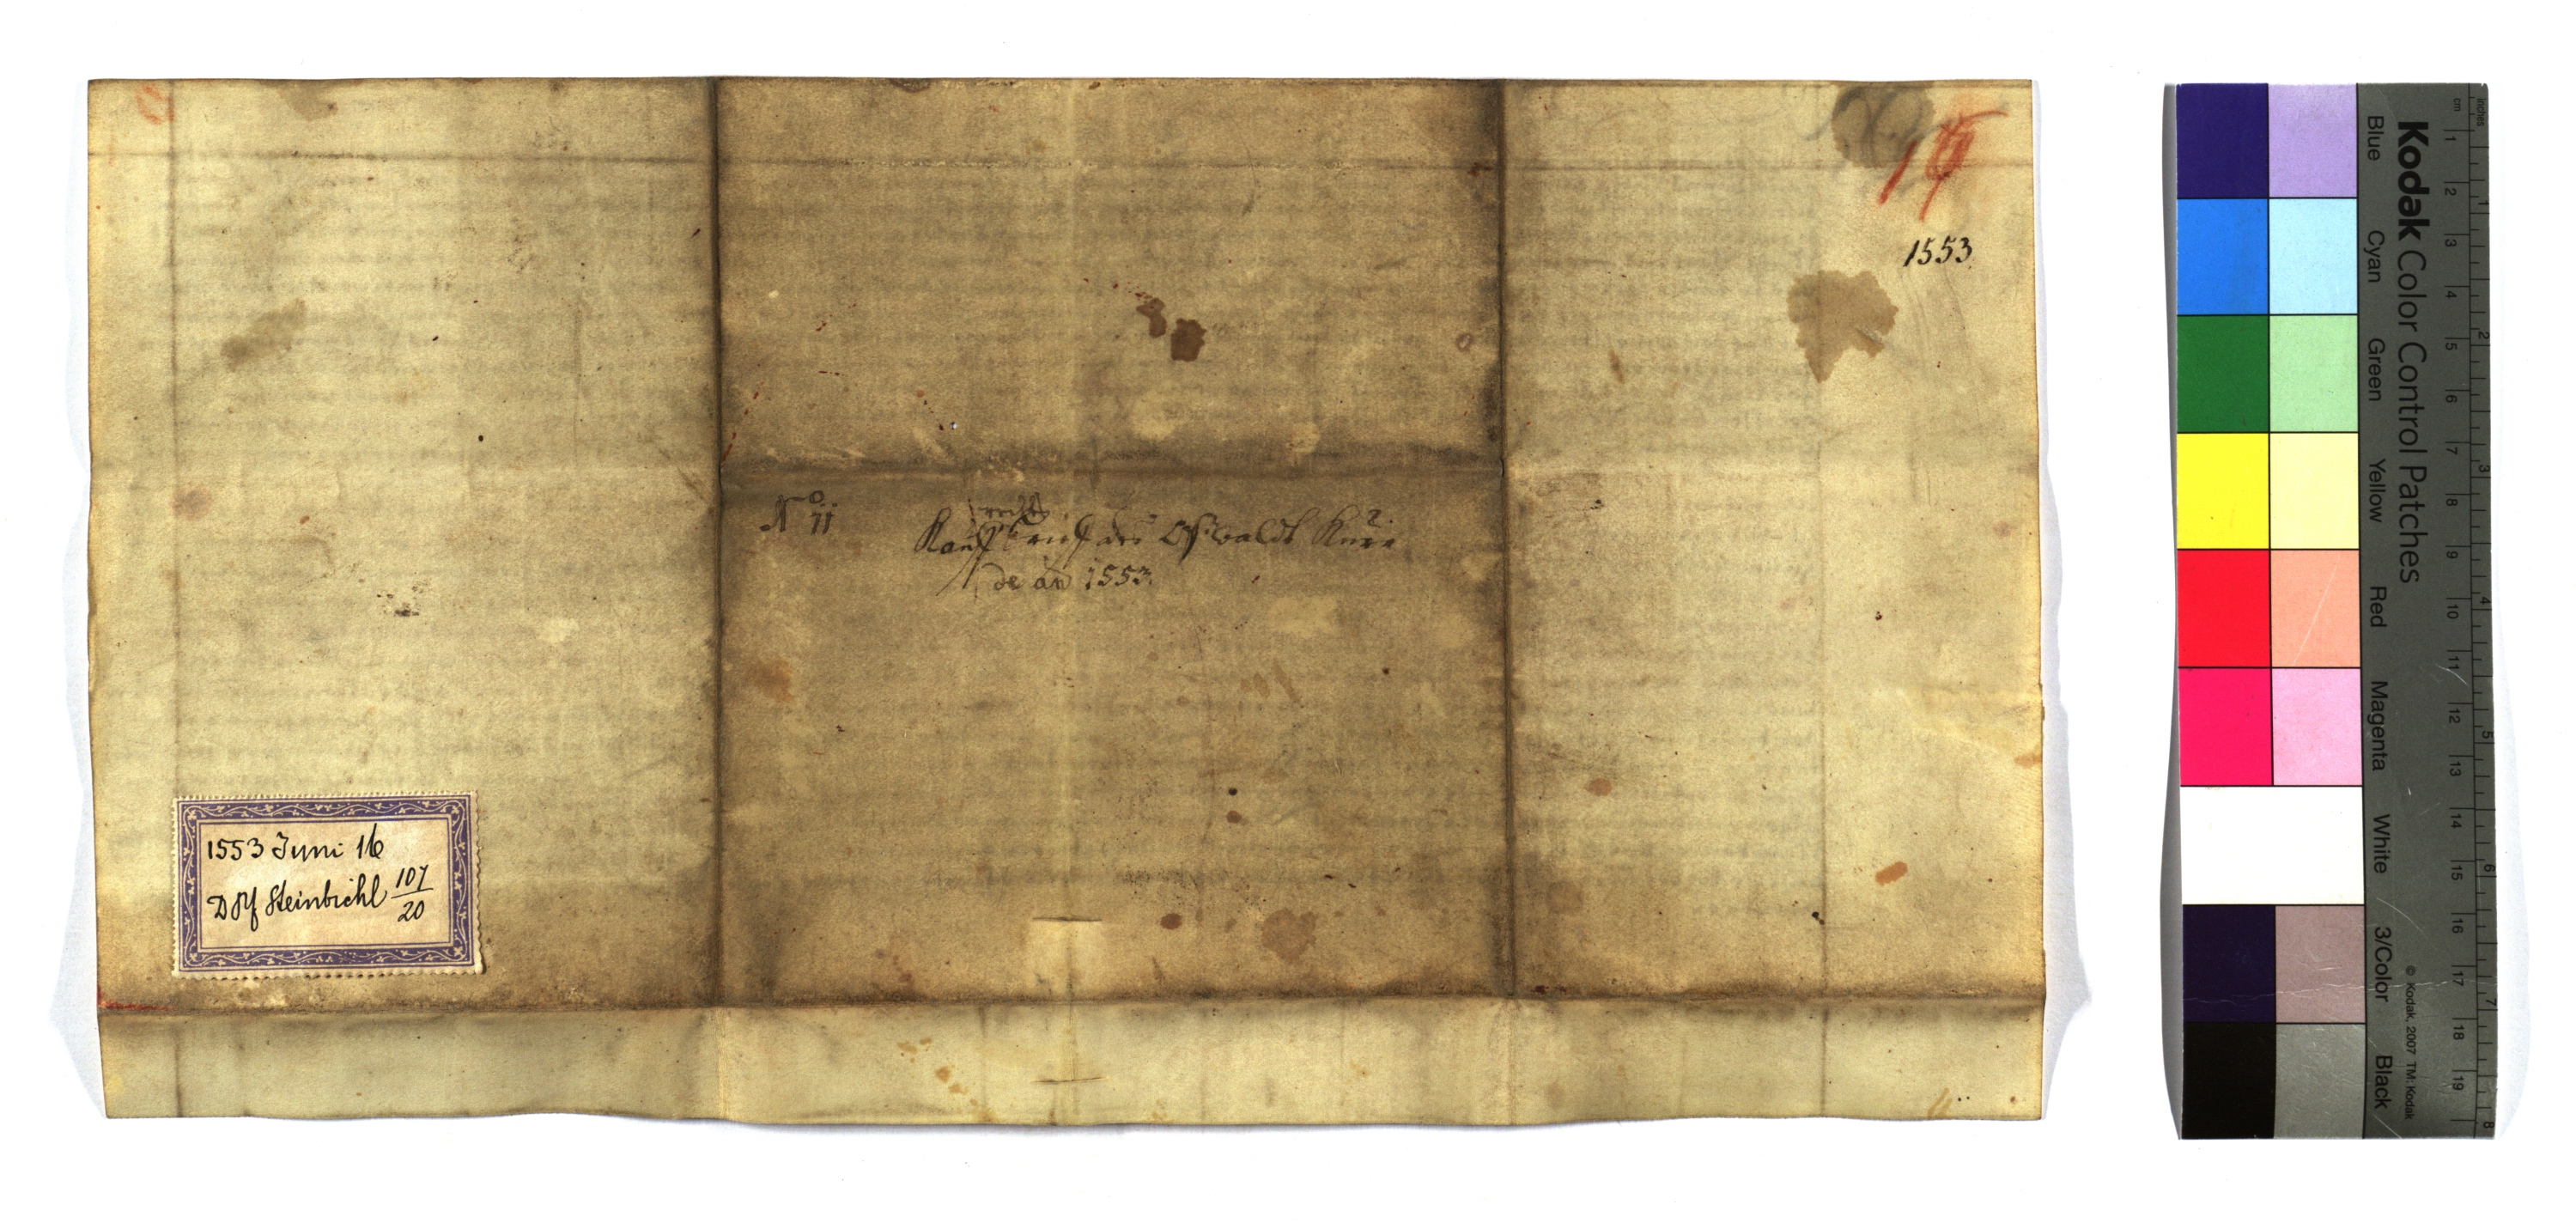 1553
No 11
rechts
Kaufbrief des Oßwaldt
de an 1553.
1553 Juni 16
Steinbichl 107/20
Kodak Color Control Patches
Blue Cyan Green Yellow Red Magenta White 3/Color Black
© Kodak, 2007 TM: Kodak
cm 1 2 3 4 5 6 7 8 9 10 11 12 13 14 15 16 17 18 19
inches 1 2 3 4 5 6 7 8